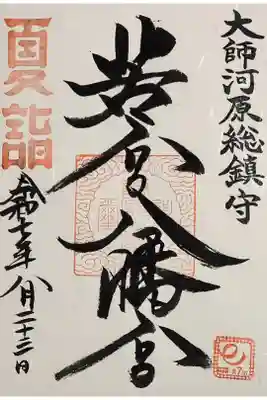 大師河原総鎮守
若宮八幡宮
夏詣
令和七年八月二十三日